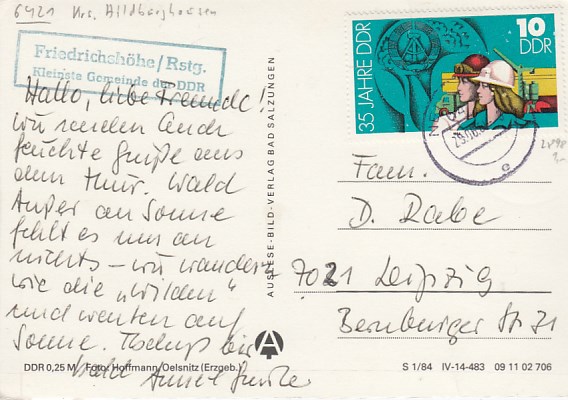 6421 Krs. Hildburghausen
Friedrichshöhe/Rstg.
Kleinste Gemeinde der DDR
35 JAHRE DDR
10
DDR
Hallo, liebe Freunde!
Wir senden Euch
feuchte Grüße aus
dem Thür. Wald
Außer an Sonne
fehlt es uns an
nichts – wir wandern
wie die „Wilden“
und warten auf
Sonne. Tschüß bis
bald
AUSLESE-BILD-VERLAG BAD SALZUNGEN
Fam.
D. Rabe
7021 Leipzig
Bernburger Str. 71
DDR 0,25 M Foto: Hoffmann/Oelsnitz (Erzgeb.)
A
S 1/84 IV-14-483 09 11 02 706